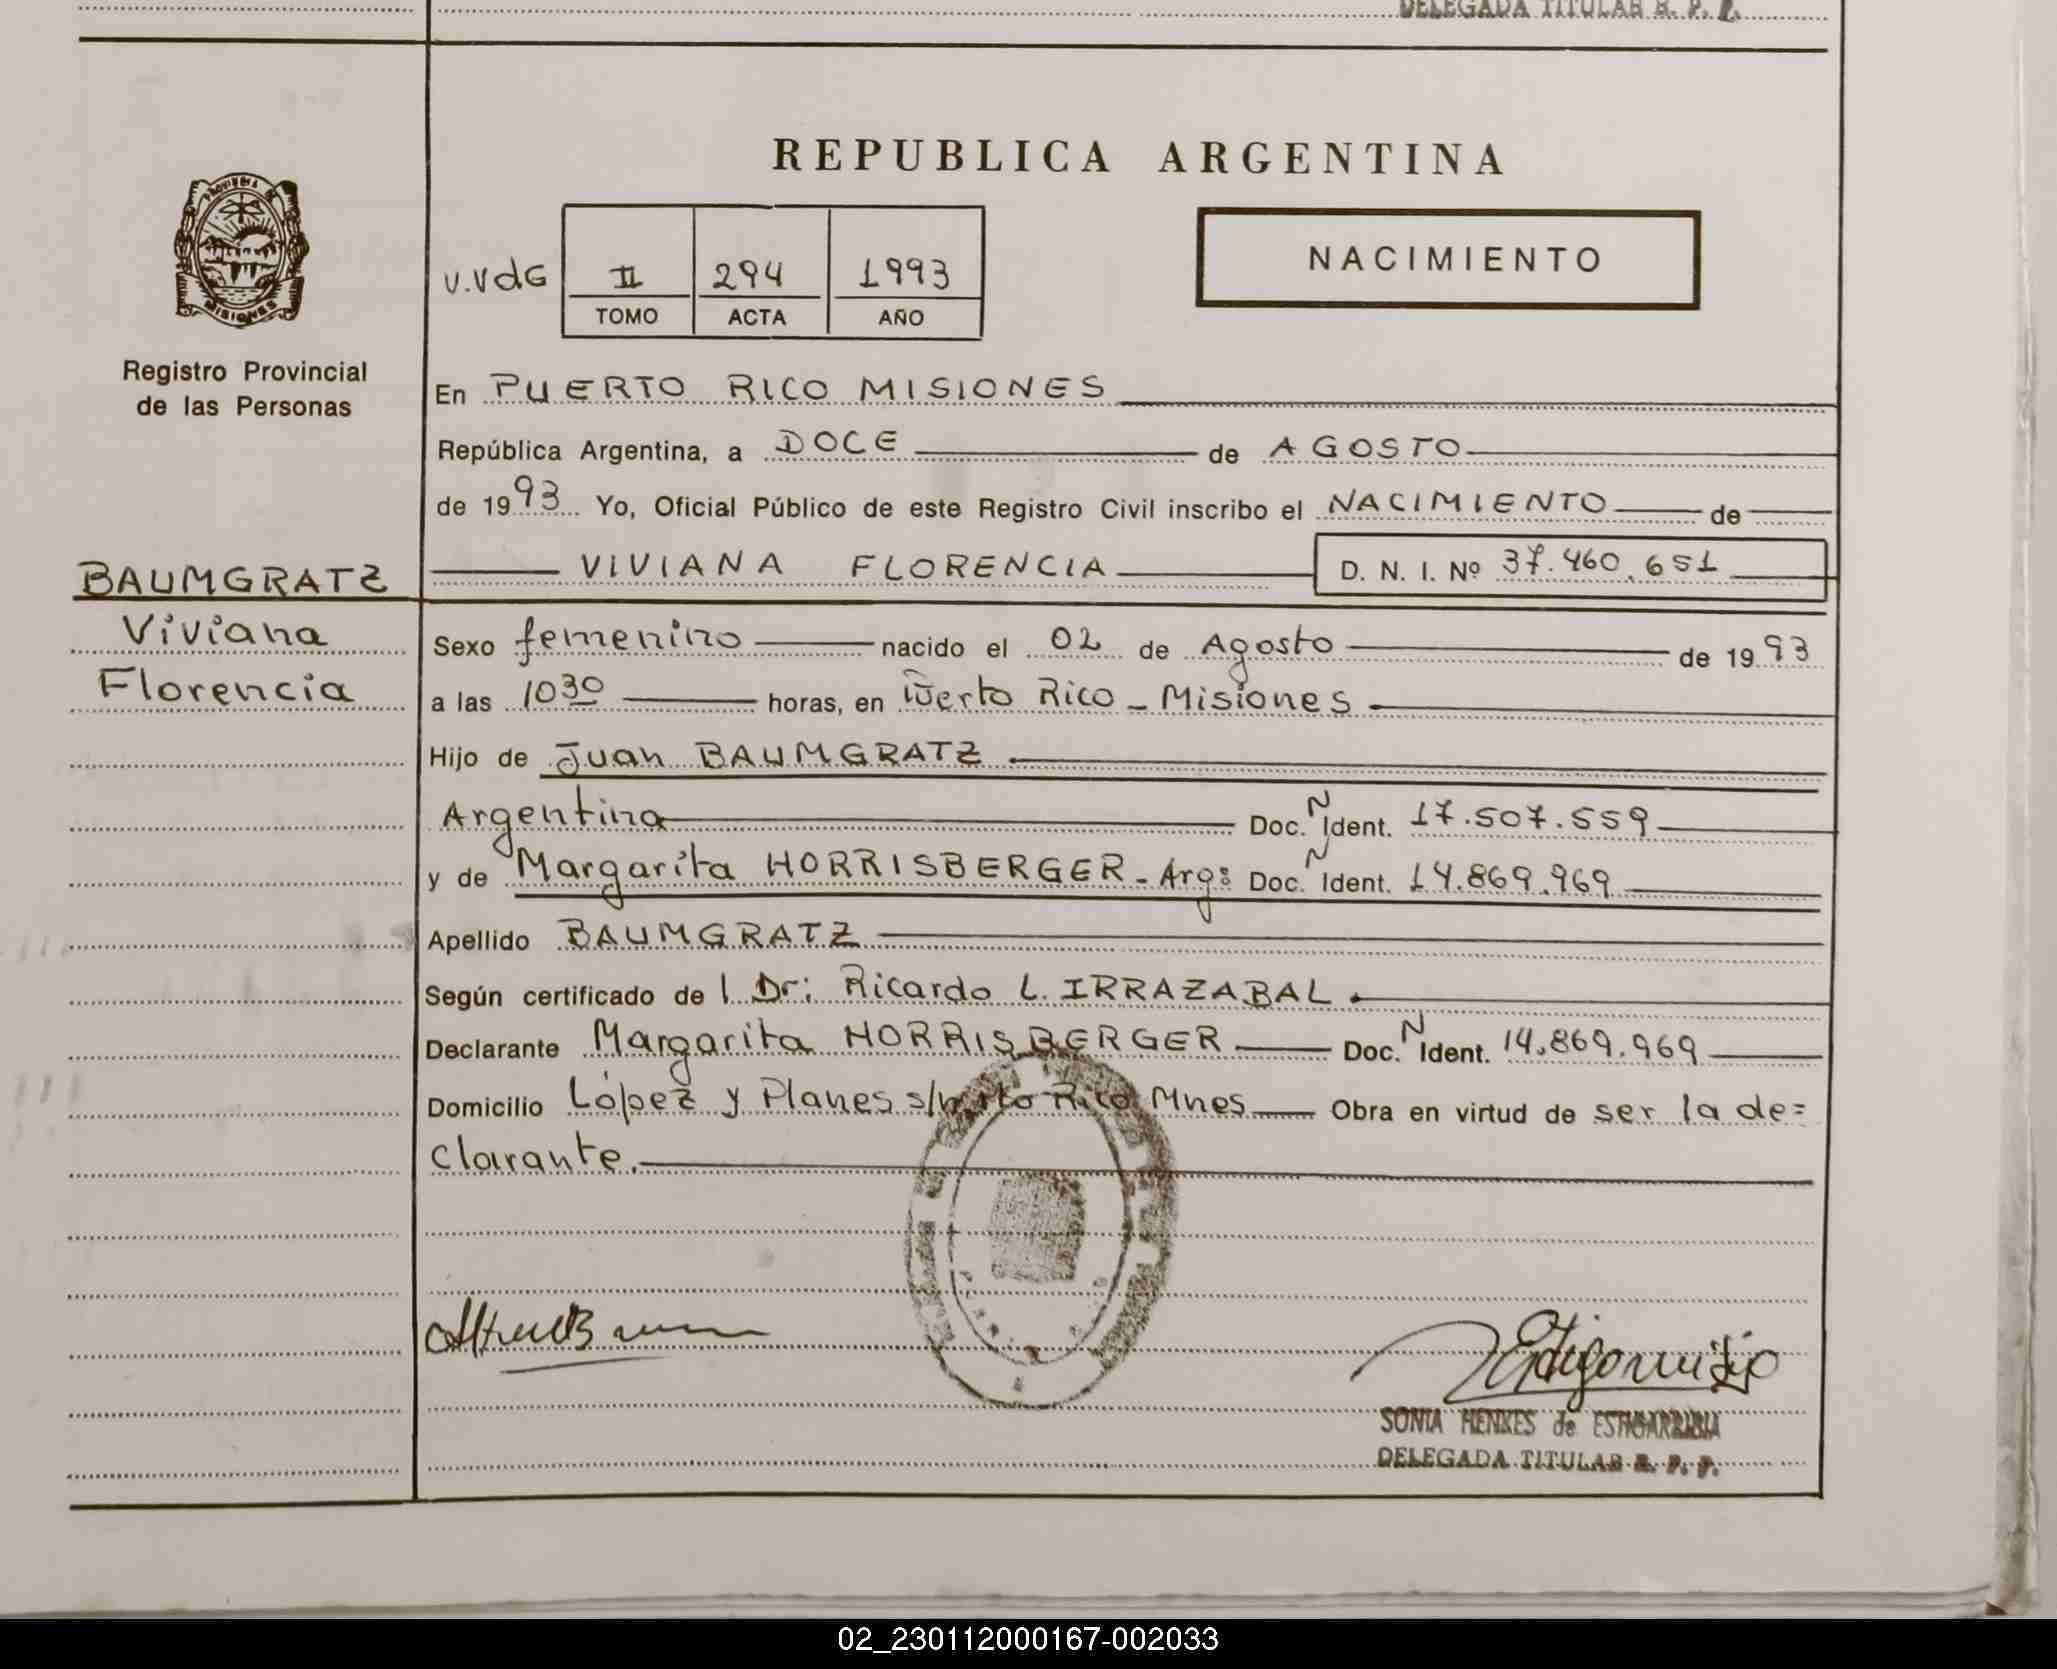 DELEGADA TITULAR R. P. P.
REPUBLICA ARGENTINA
PROVINCIA DE
MISIONES
Registro Provincial
de las Personas
V.VdG
II 294 1993
TOMO ACTA AÑO
NACIMIENTO
En PUERTO RICO MISIONES
República Argentina, a DOCE de AGOSTO
de 1993 Yo, Oficial Público de este Registro Civil inscribo el NACIMIENTO de
VIVIANA FLORENCIA D. N. I. Nº 37.460.651
BAUMGRATZ
Viviana
Florencia
Sexo femenino nacido el 02 de Agosto de 1993
a las 10³⁰ horas, en Puerto Rico - Misiones
Hijo de Juan BAUMGRATZ
Argentina Doc. N Ident. 17.507.559
y de Margarita HORRISBERGER - Arg: Doc. N Ident. 14.869.969
Apellido BAUMGRATZ
Según certificado de l Dr: Ricardo L. IRRAZABAL
Declarante Margarita HORRISBERGER Doc. N Ident. 14.869.969
Domicilio López y Planes s/n Pto Rico Mnes Obra en virtud de ser la de=
clarante.
SONIA HENXES de ESTIGARRIBIA
DELEGADA TITULAR R. P. P.
02_230112000167-002033